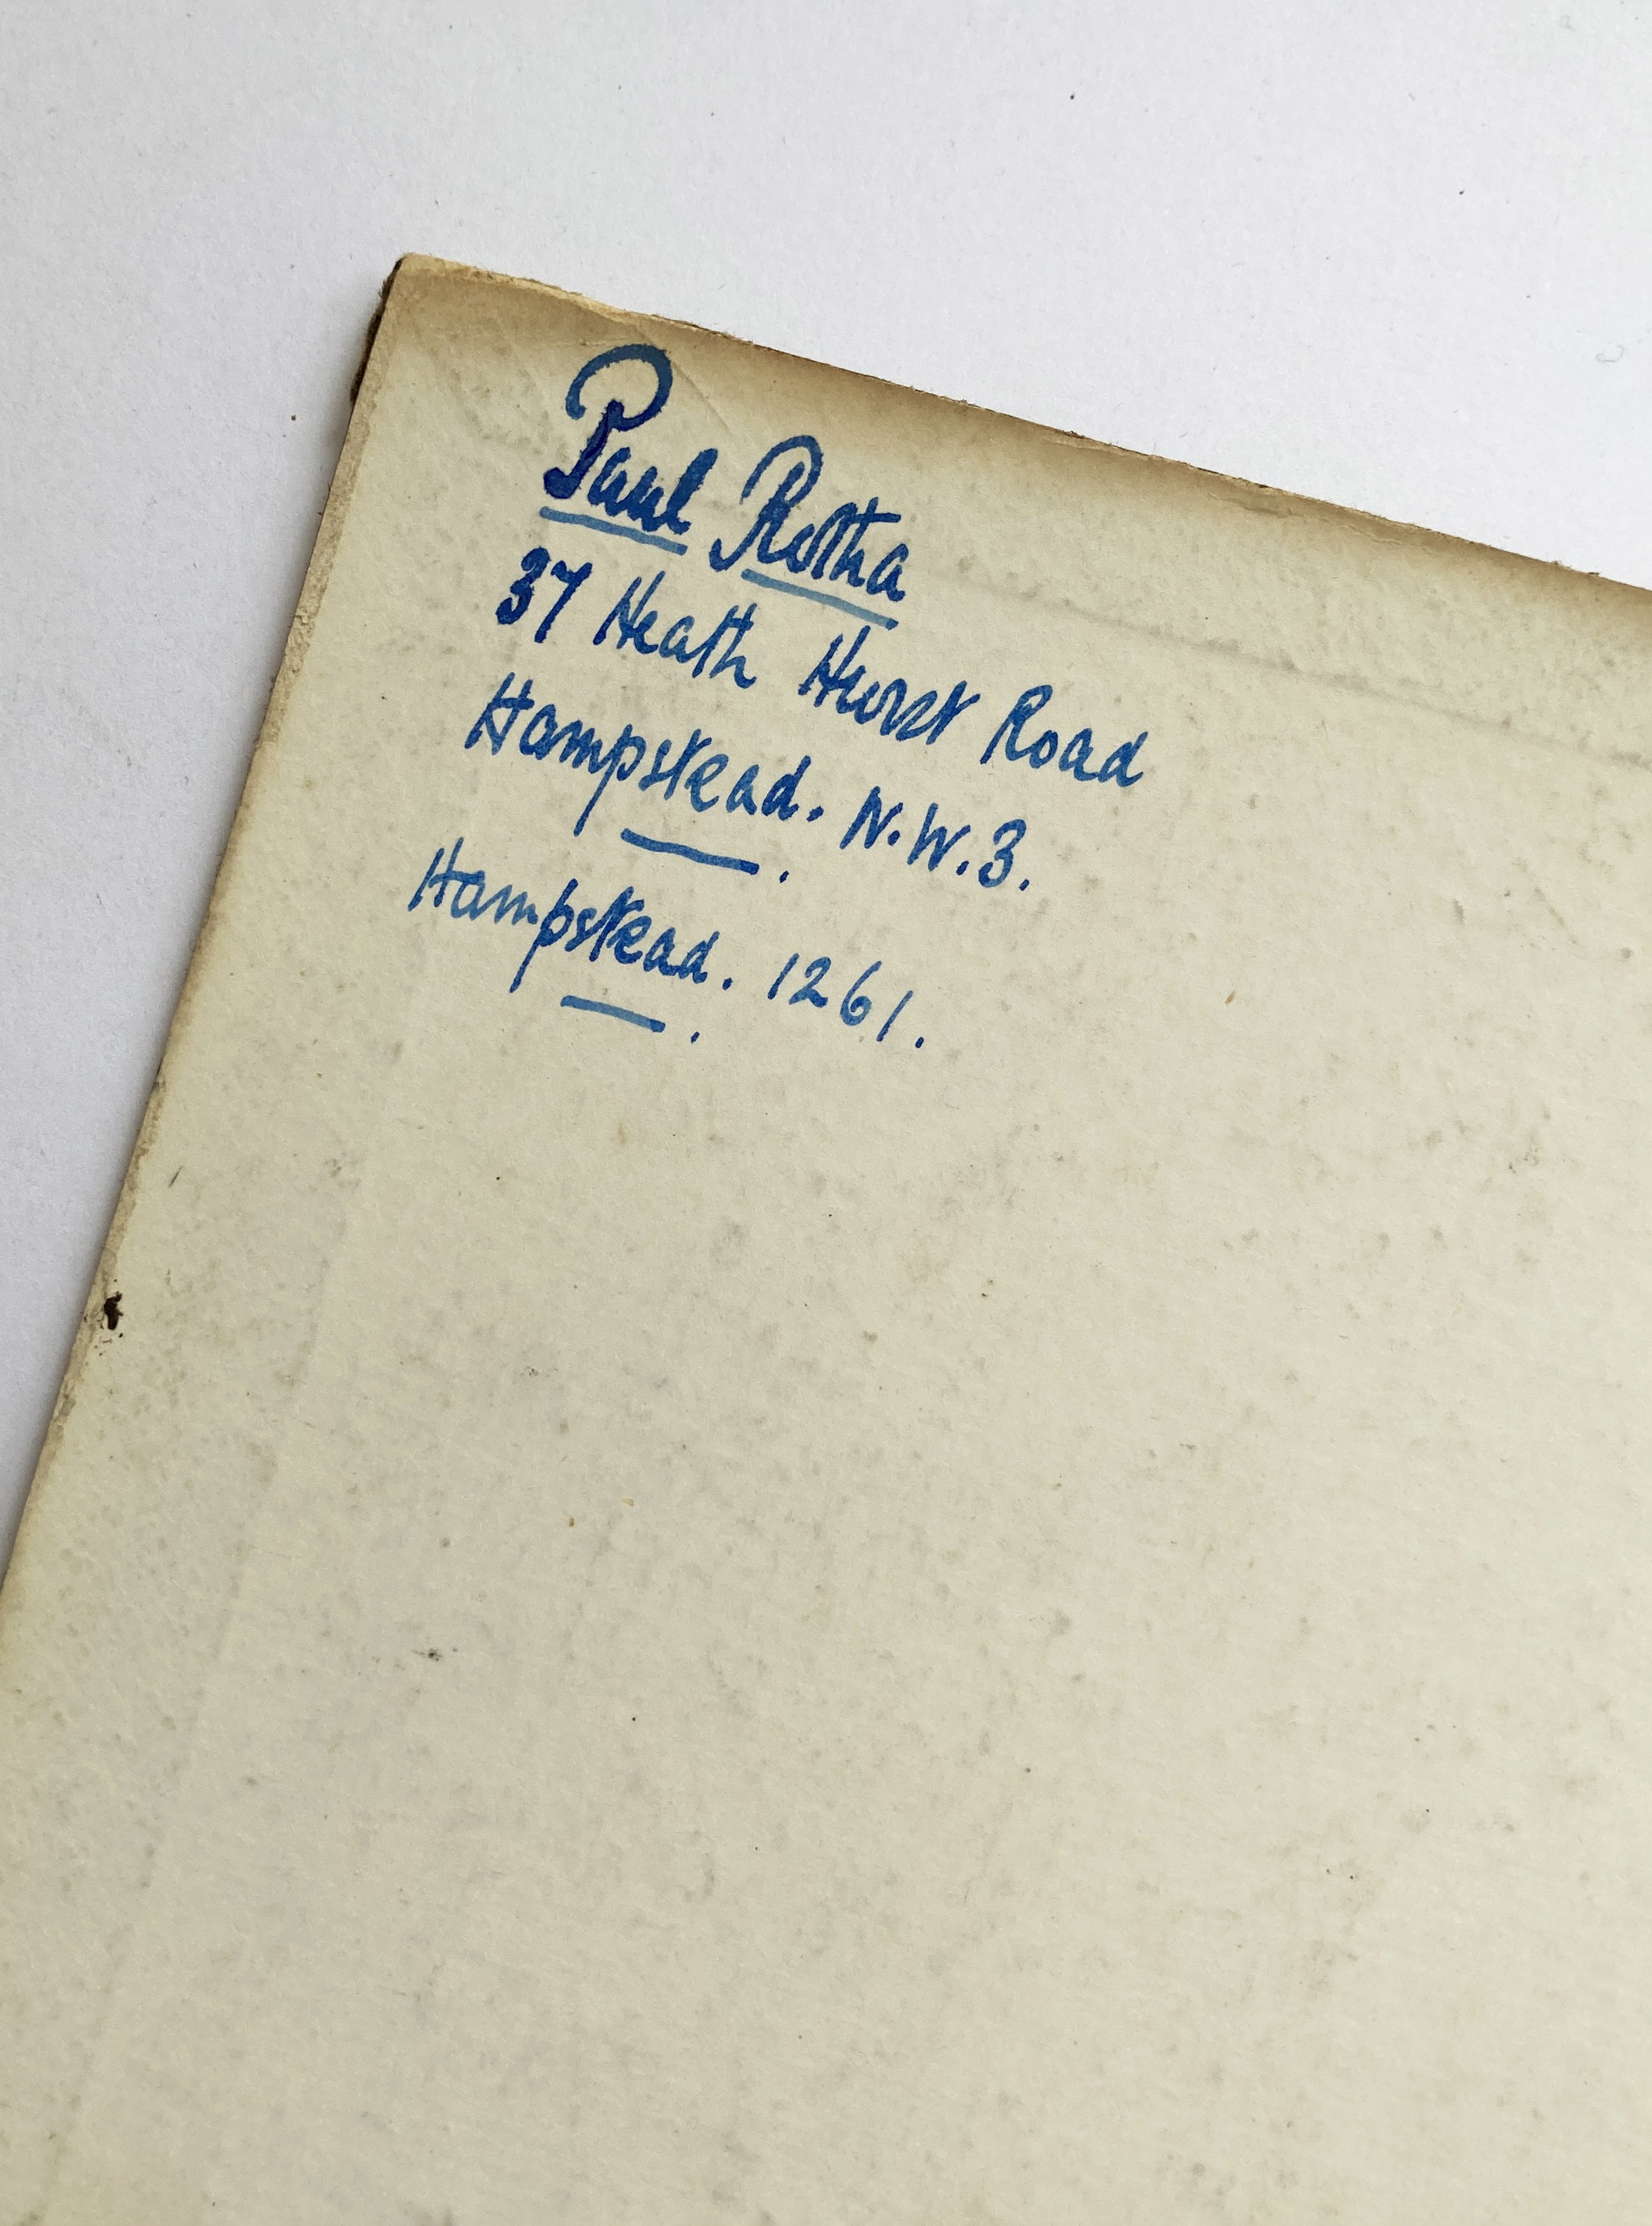 Paul Rotha
37 Heath Hurst Road
Hampstead. N.W.3.
Hampstead. 1261.